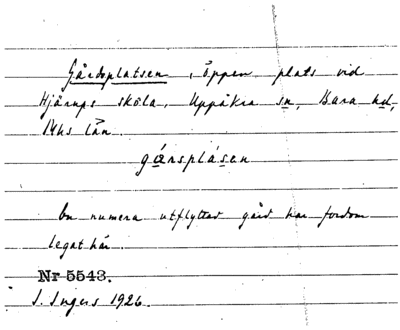 Gårdsplatsen, öppen plats vid
Hjärups skola, Uppåkra sn, Bara hd,
Mhs län.
gårsplásen
En numera utflyttad gård har fordom
legat här.
Nr 5543.
I. Ingers 1926.